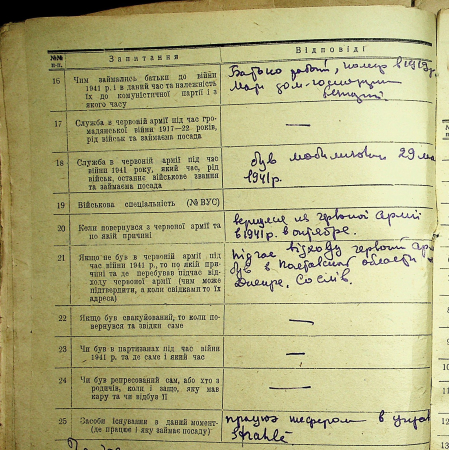 №№ п-п.
Запитання
Відповіді
16 Чим займались батьки до війни
1941 р. і в даний час та належність
їх до комуністичної партії і з
якого часу
Батько робіт, помер в 1919р.
Мати дом-господарки
17 Служба в червоній армії під час гро-
мадянської війни 1917—22 років,
рід військ та займаєма посада
—
18 Служба в червоній армії під час
війни 1941 року, який час, рід
військ, останнє військове звання
та займаєма посада
був мобілізован 29
1941р.
19 Військова спеціальність (№ ВУС)
20 Коли повернувся з червоної армії та
по якій причині
вернулся из червоної армії
в 1941р. в октябре.
21 Якщо не був в червоній армії під
час війни 1941 р., то по якій при-
чині та де перебував підчас від-
ходу червоної армії (чим може
підтвердити, а коли свідками то їх
адреса)
підчас відходу червоної ар
був в Полтавской области
22 Якщо був евакуйований, то коли по-
вернувся та звідки саме
—
23 Чи був в партизанах під час війни
1941 р. та де саме і який час
—
24 Чи був репресований сам, або хто з
родичів, коли і защо, яку мав
кару та чи відбув її
—
25 Засоби існування в даний момент-
(де працює і яку займає посаду)
працюю шофером в